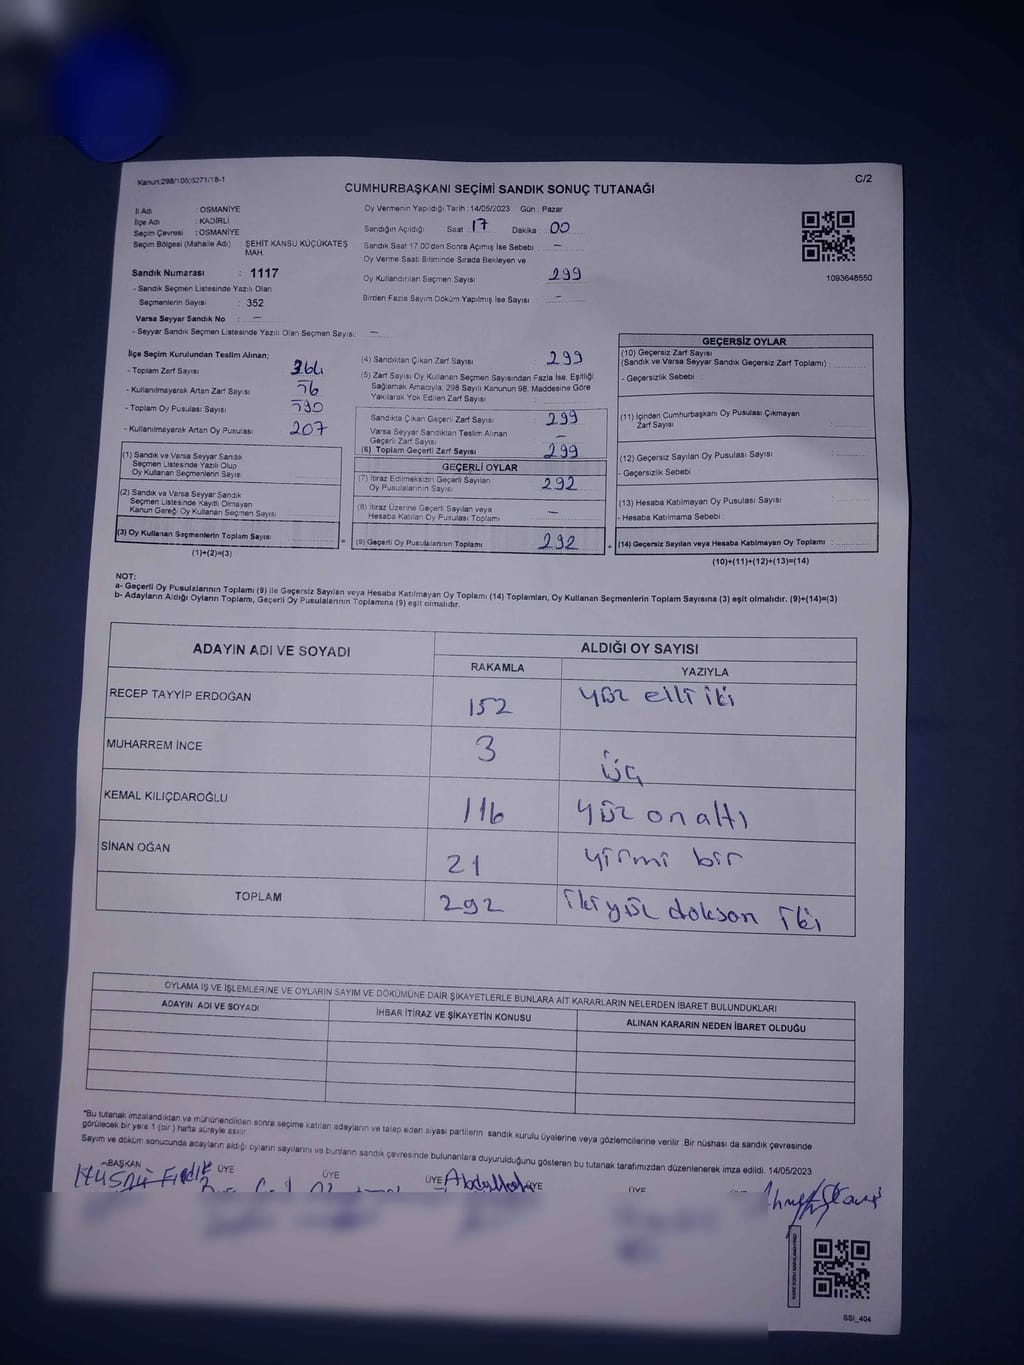 Kanun:298/105;6271/18-1
C/2
CUMHURBAŞKANI SEÇİMİ SANDIK SONUÇ TUTANAĞI
İl Adı : OSMANİYE
İlçe Adı : KADİRLİ
Seçim Çevresi : OSMANİYE
Seçim Bölgesi (Mahalle Adı) : ŞEHİT KANSU KÜÇÜKATEŞ MAH.
Sandık Numarası : 1117
- Sandık Seçmen Listesinde Yazılı Olan
Seçmenlerin Sayısı : 352
Varsa Seyyar Sandık No : —
- Seyyar Sandık Seçmen Listesinde Yazılı Olan Seçmen Sayısı: —
Oy Vermenin Yapıldığı Tarih : 14/05/2023 Gün : Pazar
Sandığın Açıldığı Saat : 17 Dakika : 00
Sandık Saat 17.00'den Sonra Açılmış İse Sebebi : —
Oy Verme Saati Bitiminde Sırada Bekleyen ve
Oy Kullandırılan Seçmen Sayısı : 299
Birden Fazla Sayım Döküm Yapılmış İse Sayısı : —
1093648550
İlçe Seçim Kurulundan Teslim Alınan;
- Toplam Zarf Sayısı :
- Kullanılmayarak Artan Zarf Sayısı :
- Toplam Oy Pusulası Sayısı :
- Kullanılmayarak Artan Oy Pusulası : 207
(1) Sandık ve Varsa Seyyar Sandık
Seçmen Listesinde Yazılı Olup
Oy Kullanan Seçmenlerin Sayısı :
(2) Sandık ve Varsa Seyyar Sandık
Seçmen Listesinde Kayıtlı Olmayan
Kanun Gereği Oy Kullanan Seçmen Sayısı :
(3) Oy Kullanan Seçmenlerin Toplam Sayısı :
(1)+(2)=(3)
=
(4) Sandıktan Çıkan Zarf Sayısı : 299
(5) Zarf Sayısı Oy Kullanan Seçmen Sayısından Fazla İse, Eşitliği
Sağlamak Amacıyla; 298 Sayılı Kanunun 98. Maddesine Göre
Yakılarak Yok Edilen Zarf Sayısı :
Sandıkta Çıkan Geçerli Zarf Sayısı : 299
Varsa Seyyar Sandıktan Teslim Alınan
Geçerli Zarf Sayısı : —
(6) Toplam Geçerli Zarf Sayısı : 299
GEÇERLİ OYLAR
(7) İtiraz Edilmeksizin Geçerli Sayılan
Oy Pusulalarının Sayısı : 292
(8) İtiraz Üzerine Geçerli Sayılan veya
Hesaba Katılan Oy Pusulası Toplamı : —
(9) Geçerli Oy Pusulalarının Toplamı : 292
+
GEÇERSİZ OYLAR
(10) Geçersiz Zarf Sayısı
(Sandık ve Varsa Seyyar Sandık Geçersiz Zarf Toplamı) :
- Geçersizlik Sebebi :
(11) İçinden Cumhurbaşkanı Oy Pusulası Çıkmayan
Zarf Sayısı :
(12) Geçersiz Sayılan Oy Pusulası Sayısı :
- Geçersizlik Sebebi
(13) Hesaba Katılmayan Oy Pusulası Sayısı :
- Hesaba Katılmama Sebebi :
(14) Geçersiz Sayılan veya Hesaba Katılmayan Oy Toplamı :
(10)+(11)+(12)+(13)=(14)
NOT:
a- Geçerli Oy Pusulalarının Toplamı (9) ile Geçersiz Sayılan veya Hesaba Katılmayan Oy Toplamı (14) Toplamları, Oy Kullanan Seçmenlerin Toplam Sayısına (3) eşit olmalıdır. (9)+(14)=(3)
b- Adayların Aldığı Oyların Toplamı, Geçerli Oy Pusulalarının Toplamına (9) eşit olmalıdır.
ADAYIN ADI VE SOYADI
ALDIĞI OY SAYISI
RAKAMLA YAZIYLA
RECEP TAYYİP ERDOĞAN 152 yüz elli iki
MUHARREM İNCE 3 üç
KEMAL KILIÇDAROĞLU 116 yüz on altı
SİNAN OĞAN 21 yirmi bir
TOPLAM 292 ikiyüz doksan iki
OYLAMA İŞ VE İŞLEMLERİNE VE OYLARIN SAYIM VE DÖKÜMÜNE DAİR ŞİKAYETLERLE BUNLARA AİT KARARLARIN NELERDEN İBARET BULUNDUKLARI
ADAYIN ADI VE SOYADI İHBAR İTİRAZ VE ŞİKAYETİN KONUSU ALINAN KARARIN NEDEN İBARET OLDUĞU
*Bu tutanak imzalandıktan ve mühürlendikten sonra seçime katılan adayların ve talep eden siyasi partilerin sandık kurulu üyelerine veya gözlemcilerine verilir. Bir nüshası da sandık çevresinde
görülecek bir yere 1 (bir) hafta süreyle asılır.
Sayım ve döküm sonucunda adayların aldığı oyların sayılarını ve bunların sandık çevresinde bulunanlara duyurulduğunu gösteren bu tutanak tarafımızdan düzenlenerek imza edildi. 14/05/2023
BAŞKAN ÜYE ÜYE ÜYE ÜYE ÜYE
Abdullah
SSI_404